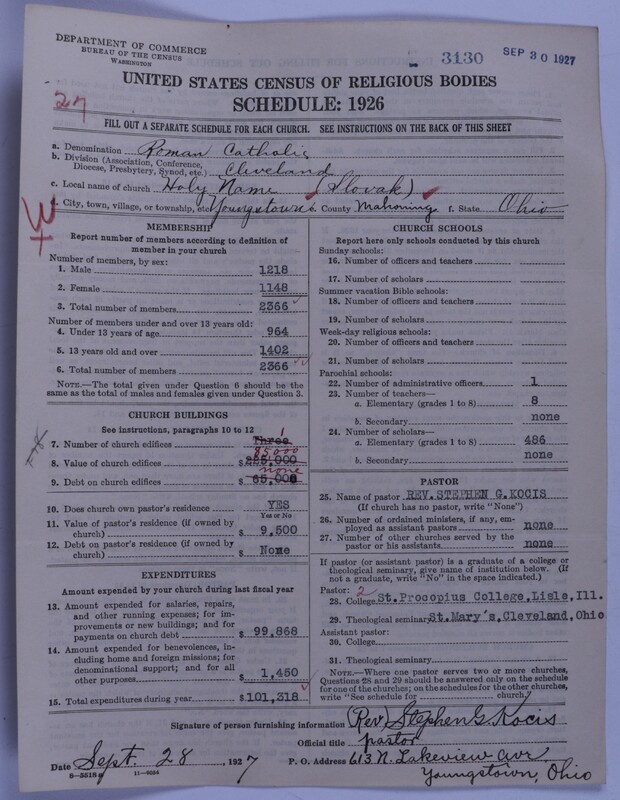 DEPARTMENT OF COMMERCE
BUREAU OF THE CENSUS
WASHINGTON
3130
SEP 30 1927
UNITED STATES CENSUS OF RELIGIOUS BODIES
SCHEDULE: 1926
27
FILL OUT A SEPARATE SCHEDULE FOR EACH CHURCH. SEE INSTRUCTIONS ON THE BACK OF THIS SHEET
a. Denomination Roman Catholic
b. Division (Association, Conference, Diocese, Presbytery, Synod, etc.) Cleveland
c. Local name of church Holy Name (Slovak)
d. City, town, village, or township, etc. Youngstown e. County Mahoning f. State Ohio
MEMBERSHIP
Report number of members according to definition of
member in your church
Number of members, by sex:
1. Male 1218
2. Female 1148
3. Total number of members 2366
Number of members under and over 13 years old:
4. Under 13 years of age 964
5. 13 years old and over 1402
6. Total number of members 2366
NOTE.—The total given under Question 6 should be
same as the total of males and females given under Question 3.
CHURCH BUILDINGS
See instructions, paragraphs 10 to 12
1
7. Number of church edifices Three
85,000
8. Value of church edifices $ 225,000
none
9. Debt on church edifices $ 65,000
10. Does church own pastor's residence YES
Yes or No
11. Value of pastor's residence (if owned by
church) $ 9,500
12. Debt on pastor's residence (if owned by
church) $ None
EXPENDITURES
Amount expended by your church during last fiscal year
13. Amount expended for salaries, repairs,
and other running expenses; for im-
provements or new buildings; and for
payments on church debt $ 99,868
14. Amount expended for benevolences, in-
cluding home and foreign missions; for
denominational support; and for all
other purposes $ 1,450
15. Total expenditures during year $ 101,318
CHURCH SCHOOLS
Report here only schools conducted by this church
Sunday schools:
16. Number of officers and teachers
17. Number of scholars
Summer vacation Bible schools:
18. Number of officers and teachers
19. Number of scholars
Week-day religious schools:
20. Number of officers and teachers
21. Number of scholars
Parochial schools:
22. Number of administrative officers 1
23. Number of teachers—
a. Elementary (grades 1 to 8) 8
b. Secondary none
24. Number of scholars—
a. Elementary (grades 1 to 8) 486
b. Secondary none
PASTOR
25. Name of pastor REV. STEPHEN G. KOCIS
(If church has no pastor, write "None")
26. Number of ordained ministers, if any, em-
ployed as assistant pastors none
27. Number of other churches served by the
pastor or his assistants none
If pastor (or assistant pastor) is a graduate of a college or
theological seminary, give name of institution below. (If
not a graduate, write "No" in the space indicated.)
Pastor: 2
28. College St. Procopius College, Lisle, Ill.
29. Theological seminary St. Mary's, Cleveland, Ohio
Assistant pastor:
30. College
31. Theological seminary
NOTE.—Where one pastor serves two or more churches,
Questions 28 and 29 should be answered only on the schedule
for one of the churches; on the schedules for the other churches,
write "See schedule for church."
Signature of person furnishing information (Rev) Stephen G. Kocis
Official title pastor
Date Sept. 28, 1927 P. O. Address 613 N. Lakeview ave,
8—5518 a 11—9034 Youngstown, Ohio